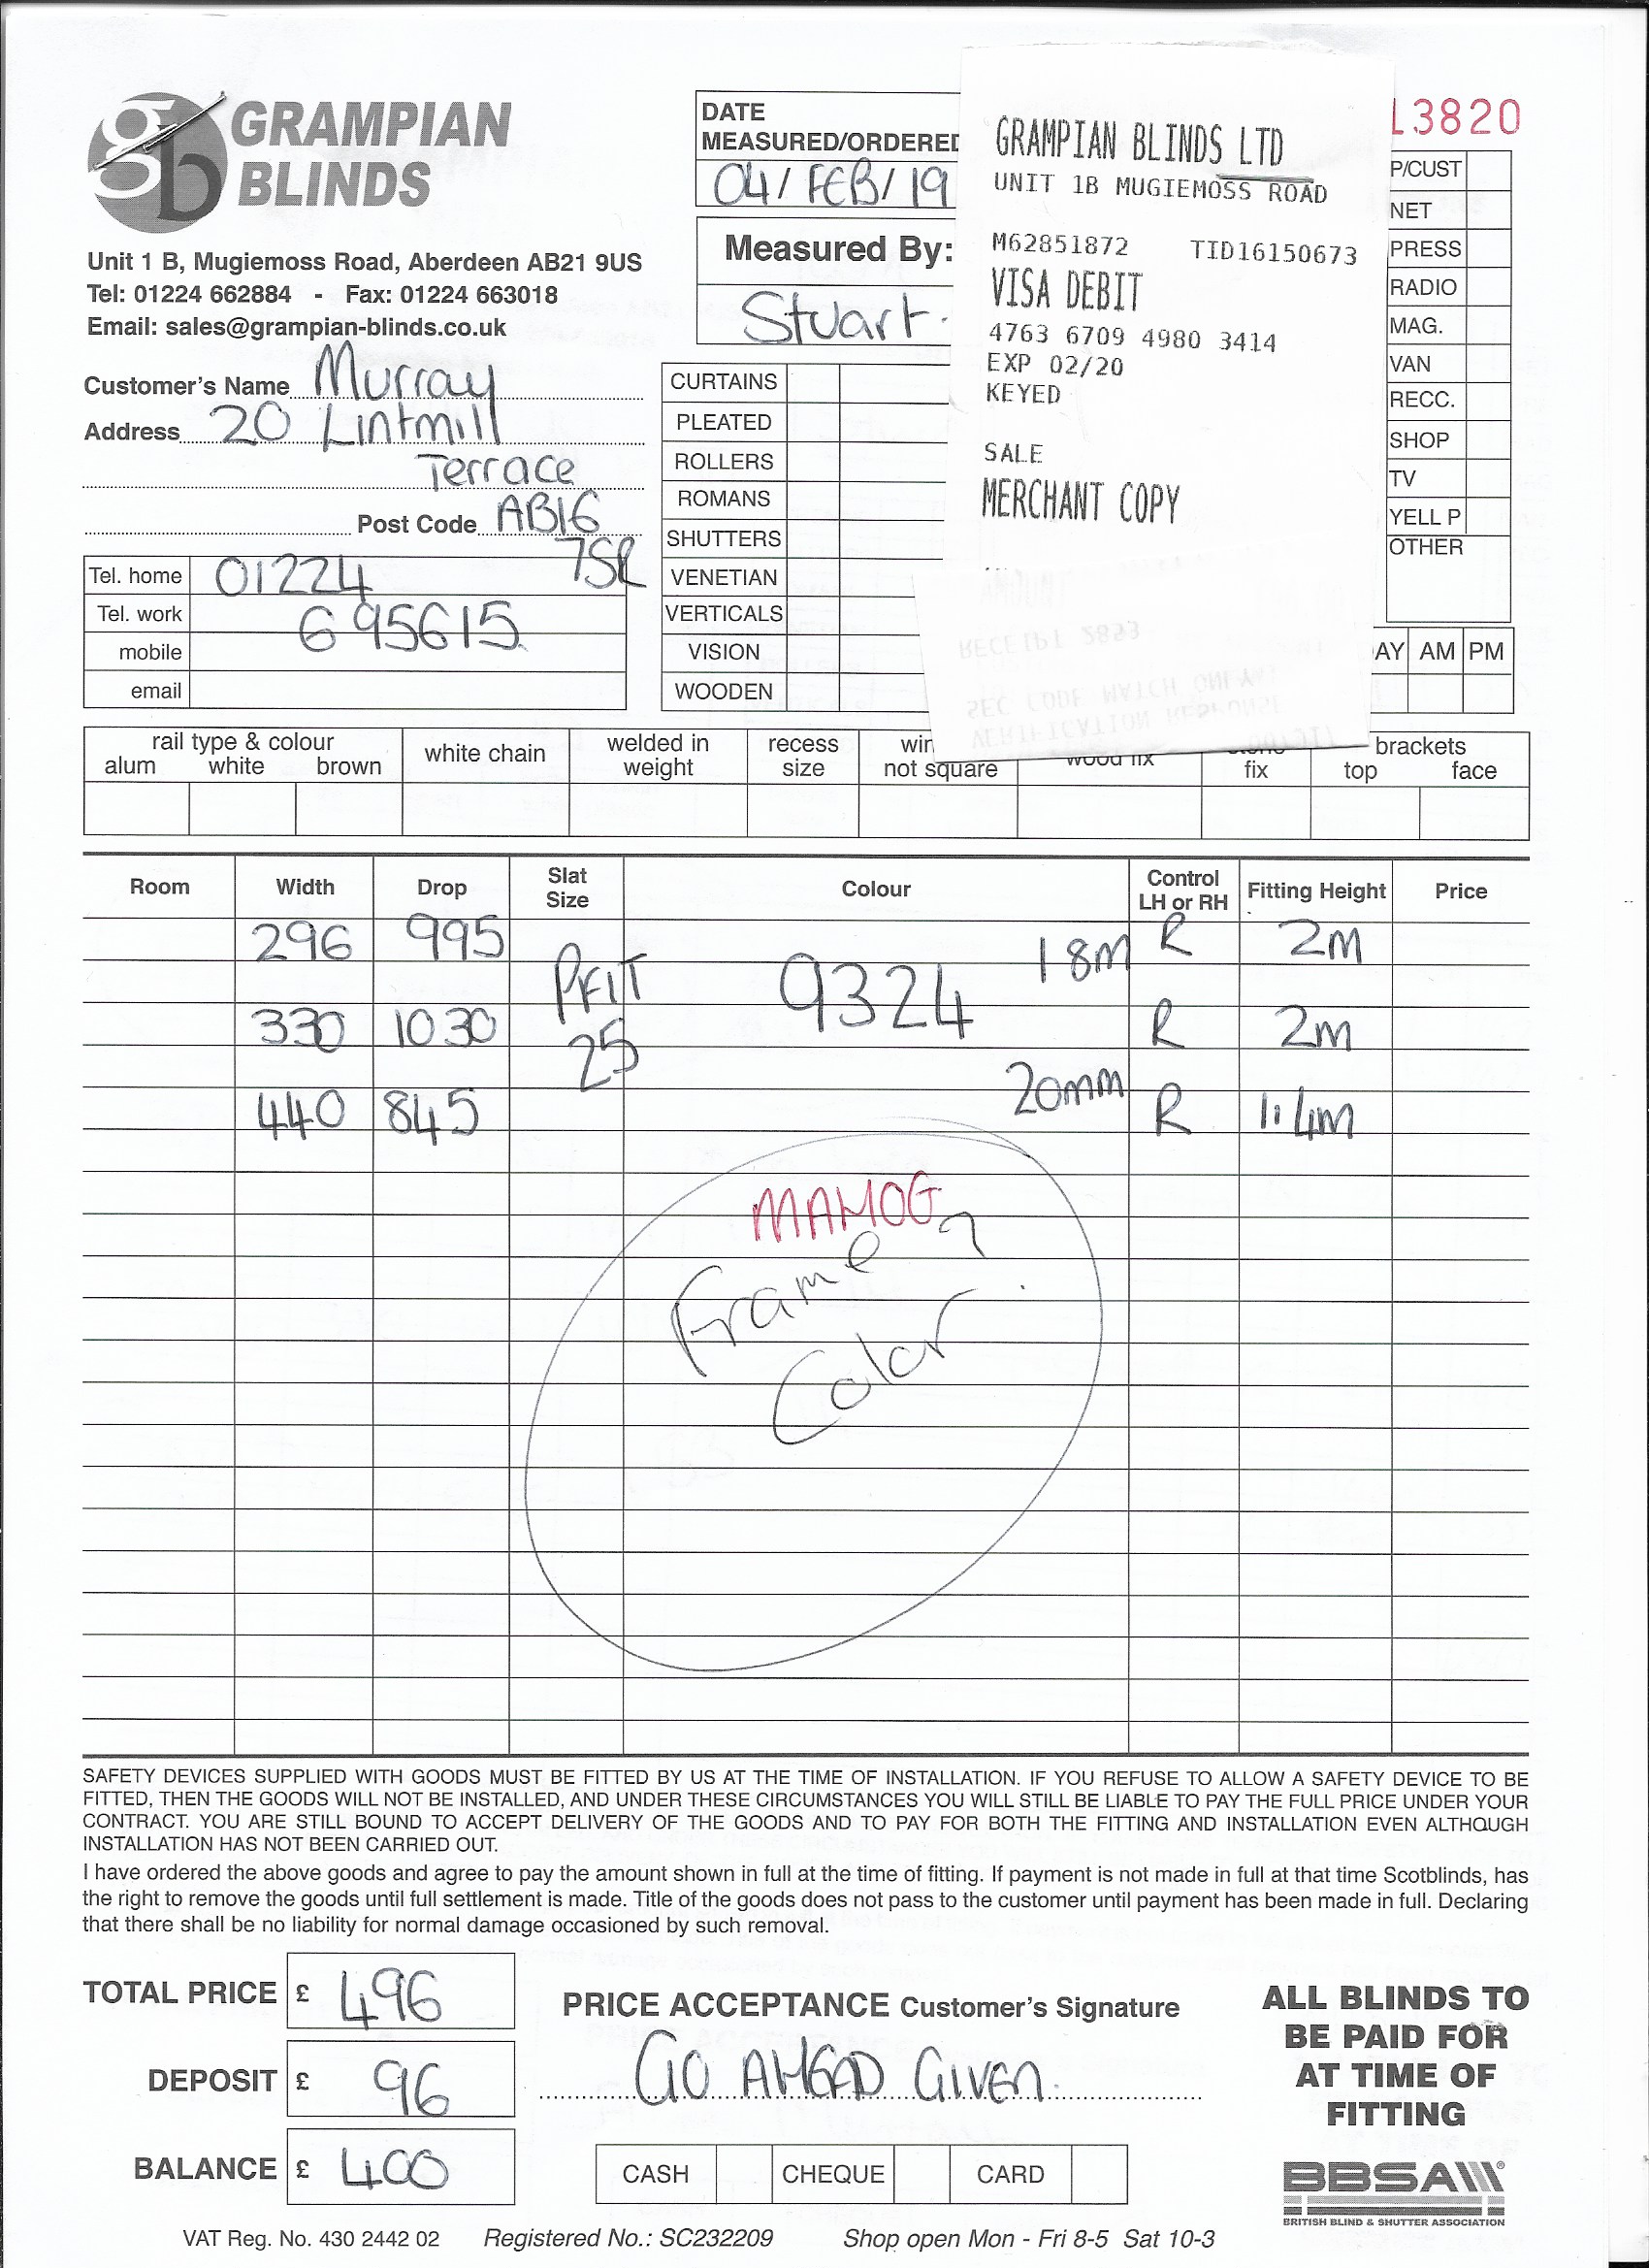 GRAMPIAN
BLINDS
gb
Unit 1 B, Mugiemoss Road, Aberdeen AB21 9US
Tel: 01224 662884 - Fax: 01224 663018
Email: sales@grampian-blinds.co.uk
DATE
MEASURED/ORDERED
04/FEB/19
Measured By:
Stuart.
GRAMPIAN BLINDS LTD
UNIT 1B MUGIEMOSS ROAD
M62851872 TID16150673
VISA DEBIT
4763 6709 4980 3414
EXP 02/20
KEYED
SALE
MERCHANT COPY
13820
P/CUST
NET
PRESS
RADIO
MAG.
VAN
RECC.
SHOP
TV
YELL P
OTHER
AY AM PM
Customer's Name Murray
Address 20 Lintmill
Terrace
Post Code AB16
7SR
Tel. home 01224
Tel. work 695615
mobile
email
CURTAINS
PLEATED
ROLLERS
ROMANS
SHUTTERS
VENETIAN
VERTICALS
VISION
WOODEN
AMOUNT
RECEIPT 2893
SEC CODE MATCH ONLY
VERIFICATION RESPONSE
rail type & colour
alum white brown
white chain
welded in
weight
recess
size
win
not square
wood fix
fix
brackets
top face
Room Width Drop Slat Size Colour Control LH or RH Fitting Height Price
296 995 18m R 2m
PFIT 9324
330 1030 R 2m
25
20mm
440 845 R 1.4m
MAHOG
Frame ?
Color
SAFETY DEVICES SUPPLIED WITH GOODS MUST BE FITTED BY US AT THE TIME OF INSTALLATION. IF YOU REFUSE TO ALLOW A SAFETY DEVICE TO BE
FITTED, THEN THE GOODS WILL NOT BE INSTALLED, AND UNDER THESE CIRCUMSTANCES YOU WILL STILL BE LIABLE TO PAY THE FULL PRICE UNDER YOUR
CONTRACT. YOU ARE STILL BOUND TO ACCEPT DELIVERY OF THE GOODS AND TO PAY FOR BOTH THE FITTING AND INSTALLATION EVEN ALTHOUGH
INSTALLATION HAS NOT BEEN CARRIED OUT.
I have ordered the above goods and agree to pay the amount shown in full at the time of fitting. If payment is not made in full at that time Scotblinds, has
the right to remove the goods until full settlement is made. Title of the goods does not pass to the customer until payment has been made in full. Declaring
that there shall be no liability for normal damage occasioned by such removal.
TOTAL PRICE £ 496
DEPOSIT £ 96
BALANCE £ 400
PRICE ACCEPTANCE Customer's Signature
GO AHEAD GIVEN.
CASH CHEQUE CARD
ALL BLINDS TO
BE PAID FOR
AT TIME OF
FITTING
BBSA
BRITISH BLIND & SHUTTER ASSOCIATION
VAT Reg. No. 430 2442 02 Registered No.: SC232209 Shop open Mon - Fri 8-5 Sat 10-3